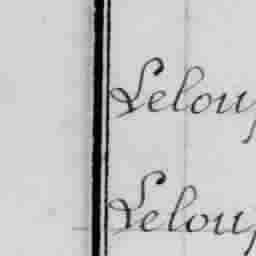 Leloup
Leloup